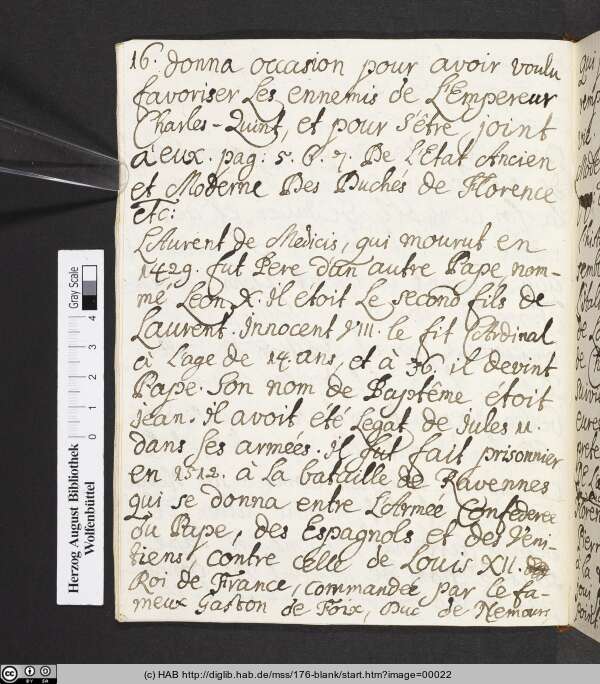 16. donna occasion pour avoir voulu
favoriser Les ennemis de L'Empereur
Charles-Quint, et pour s'être joint
à eux. pag: 5. 6. 7. De L'Etat Ancien
et Moderne Des Duchés de Florence
etc:
LAurent de Médicis, qui mourut en
1429. fut Pere d'un autre Pape nom-
mé Leon X. il étoit Le second fils de
Laurent. innocent VIII. le fit CArdinal
à L'age de 14. ans, et à 36. il devint
Pape. Son nom de Baptême étoit
jean. il avoit été Legat de jules 11.
dans ses armées. il fut fait prisonnier
en 1512. à La bataille de Ravennes
qui se donna entre L'Armée Confederee
du Pape, des Espagnols et des Veni-
tiens, contre celle de Louis XII.
Roi de France, commandée par le fa-
meux Gaston de Foix, Duc de Nemours
Herzog August Bibliothek
Wolfenbüttel
Gray Scale
0 1 2 3 4
(c) HAB http://diglib.hab.de/mss/176-blank/start.htm?image=00022
cc BY SA